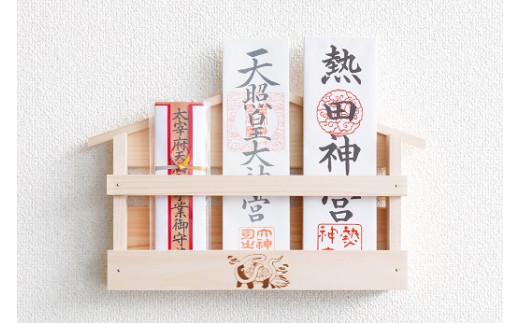 熱田神宮
熱
神
天照皇大神宮
大神
太宰府天
業御守